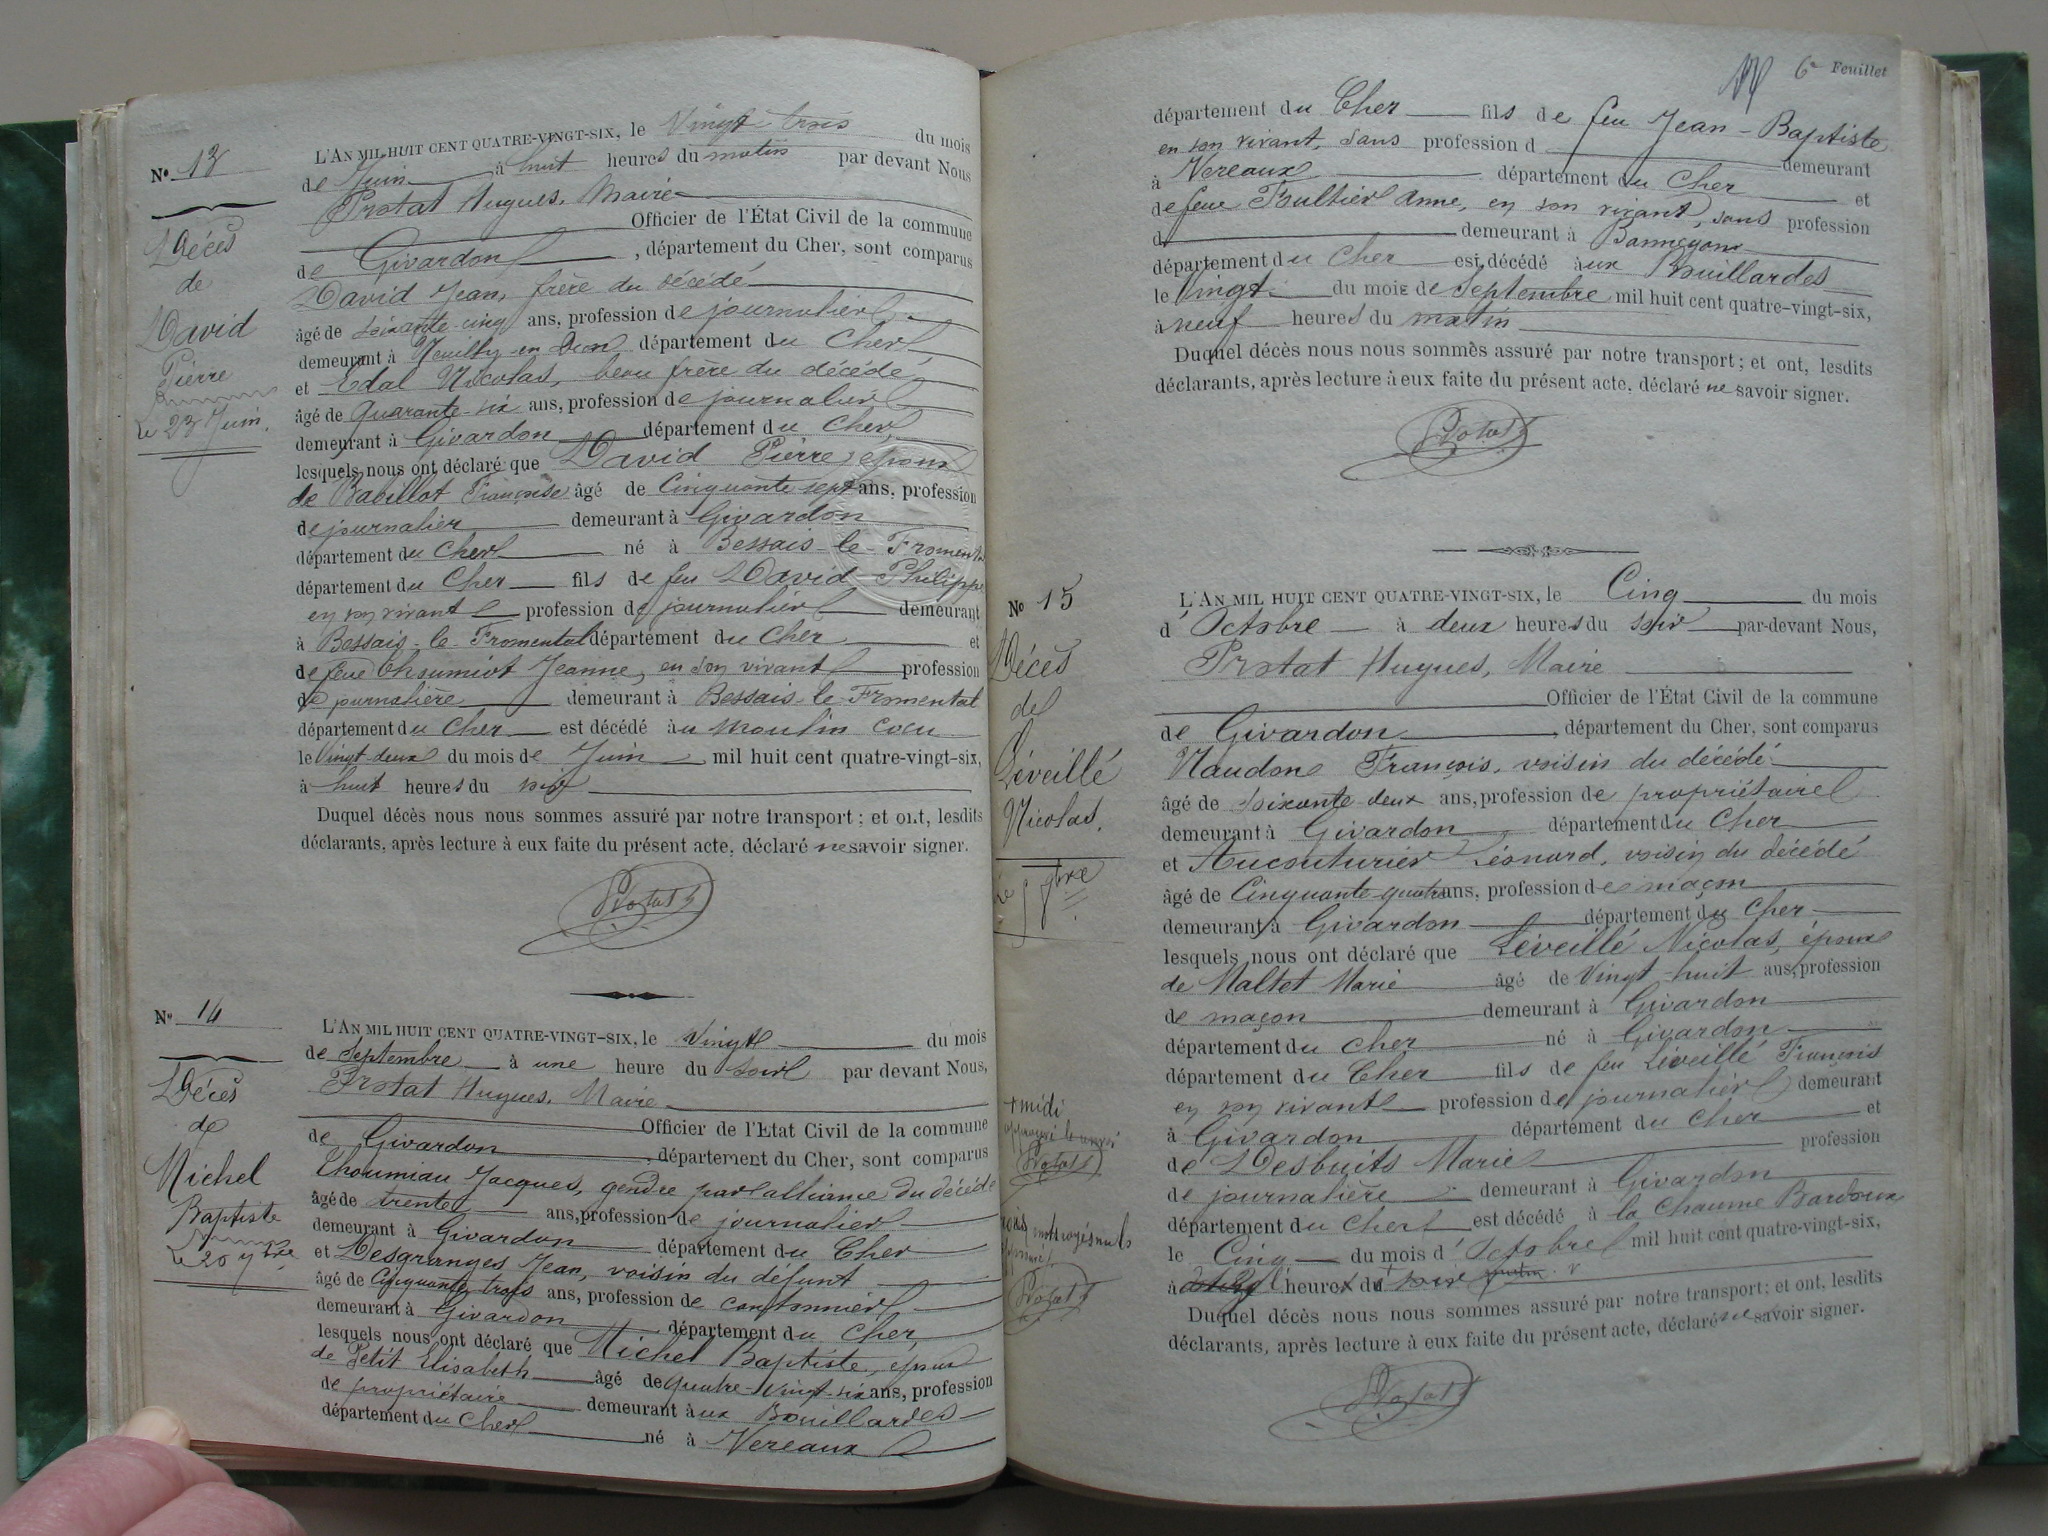 Nº 13
Décès
de
David
Pierre
le 23 Juin.
L'AN MIL HUIT CENT QUATRE-VINGT-SIX, le Vingt trois du mois
de Juin à huit heures du matin par devant Nous
Protat Hugues, Maire
Officier de l'État Civil de la commune
de Givardon, département du Cher, sont comparus
David Jean, frère du décédé
âgé de soixante-cinq ans, profession de journalier
demeurant à Neuilly-en-Dun département du Cher
et Edal Nicolas, beau frère du décédé
âgé de Quarante-six ans, profession de journalier
demeurant à Givardon département du Cher,
lesquels nous ont déclaré que David Pierre, époux
de Bavillot Françoise âgé de Cinquante sept ans, profession
de journalier demeurant à Givardon
département du Cher né à Bessais-le-Fromental
département du Cher fils de feu David Philippe
en son vivant profession de journalier demeurant
à Bessais-le-Fromental département du Cher et
de feue Choumiot Jeanne, en son vivant profession
de journalière demeurant à Bessais-le-Fromental
département du Cher est décédé au moulin cocu
le Vingt-deux du mois de Juin mil huit cent quatre-vingt-six,
à huit heures du soir
Duquel décès nous nous sommes assuré par notre transport ; et ont, lesdits
déclarants, après lecture à eux faite du présent acte, déclaré ne savoir signer.
Protat
Nº 14
Décès
de
Michel
Baptiste
le 20 7bre
L'AN MIL HUIT CENT QUATRE-VINGT-SIX, le Vingt du mois
de Septembre à une heure du soir par devant Nous,
Protat Hugues, Maire
Officier de l'Etat Civil de la commune
de Givardon, département du Cher, sont comparus
Choumiau Jacques, gendre par alliance du décédé
âgé de trente ans, profession de journalier
demeurant à Givardon département du Cher
et Desgranges Jean, voisin du défunt
âgé de Cinquante trois ans, profession de cantonnier
demeurant à Givardon département du Cher,
lesquels nous ont déclaré que Michel Baptiste, époux
de Petit Elisabeth âgé de quatre-vingt-six ans, profession
de propriétaire demeurant aux Bouillardes
département du Cher né à Vereaux
6e Feuillet
département du Cher fils de feu Jean-Baptiste
en son vivant, sans profession d demeurant
à Vereaux département du Cher et
de feue Foultier Anne, en son vivant, sans profession
d demeurant à Bannegon
département du Cher est décédé aux Bouillardes
le Vingt du mois de Septembre mil huit cent quatre-vingt-six,
à neuf heures du matin
Duquel décès nous nous sommes assuré par notre transport ; et ont, lesdits
déclarants, après lecture à eux faite du présent acte, déclaré ne savoir signer.
Protat
Nº 15
Décès
de
Léveillé
Nicolas.
le 5 8bre
L'AN MIL HUIT CENT QUATRE-VINGT-SIX, le Cinq du mois
d'Octobre à deux heures du soir par-devant Nous,
Protat Hugues, Maire
Officier de l'État Civil de la commune
de Givardon, département du Cher, sont comparus
Naudon François, voisin du décédé
âgé de soixante deux ans, profession de propriétaire
demeurant à Givardon département du Cher
et Aucouturier Léonard, voisin du décédé
âgé de Cinquante-quatre ans, profession de maçon
demeurant à Givardon département du Cher
lesquels nous ont déclaré que Léveillé Nicolas, époux
de Maltet Marie âgé de Vingt-huit ans, profession
de maçon demeurant à Givardon
département du Cher né à Givardon
département du Cher fils de feu Léveillé François
en son vivant profession de journalier demeurant
à Givardon département du Cher et
de Desbuits Marie profession
de journalière demeurant à Givardon
département du Cher est décédé à la Chaume Bardoux
le Cinq du mois d'Octobre mil huit cent quatre-vingt-six,
à heure du
Duquel décès nous nous sommes assuré par notre transport ; et ont, lesdits
déclarants, après lecture à eux faite du présent acte, déclaré ne savoir signer.
Protat
+ midi
approuvé le renvoi
Protat
mots rayés nuls
Protat